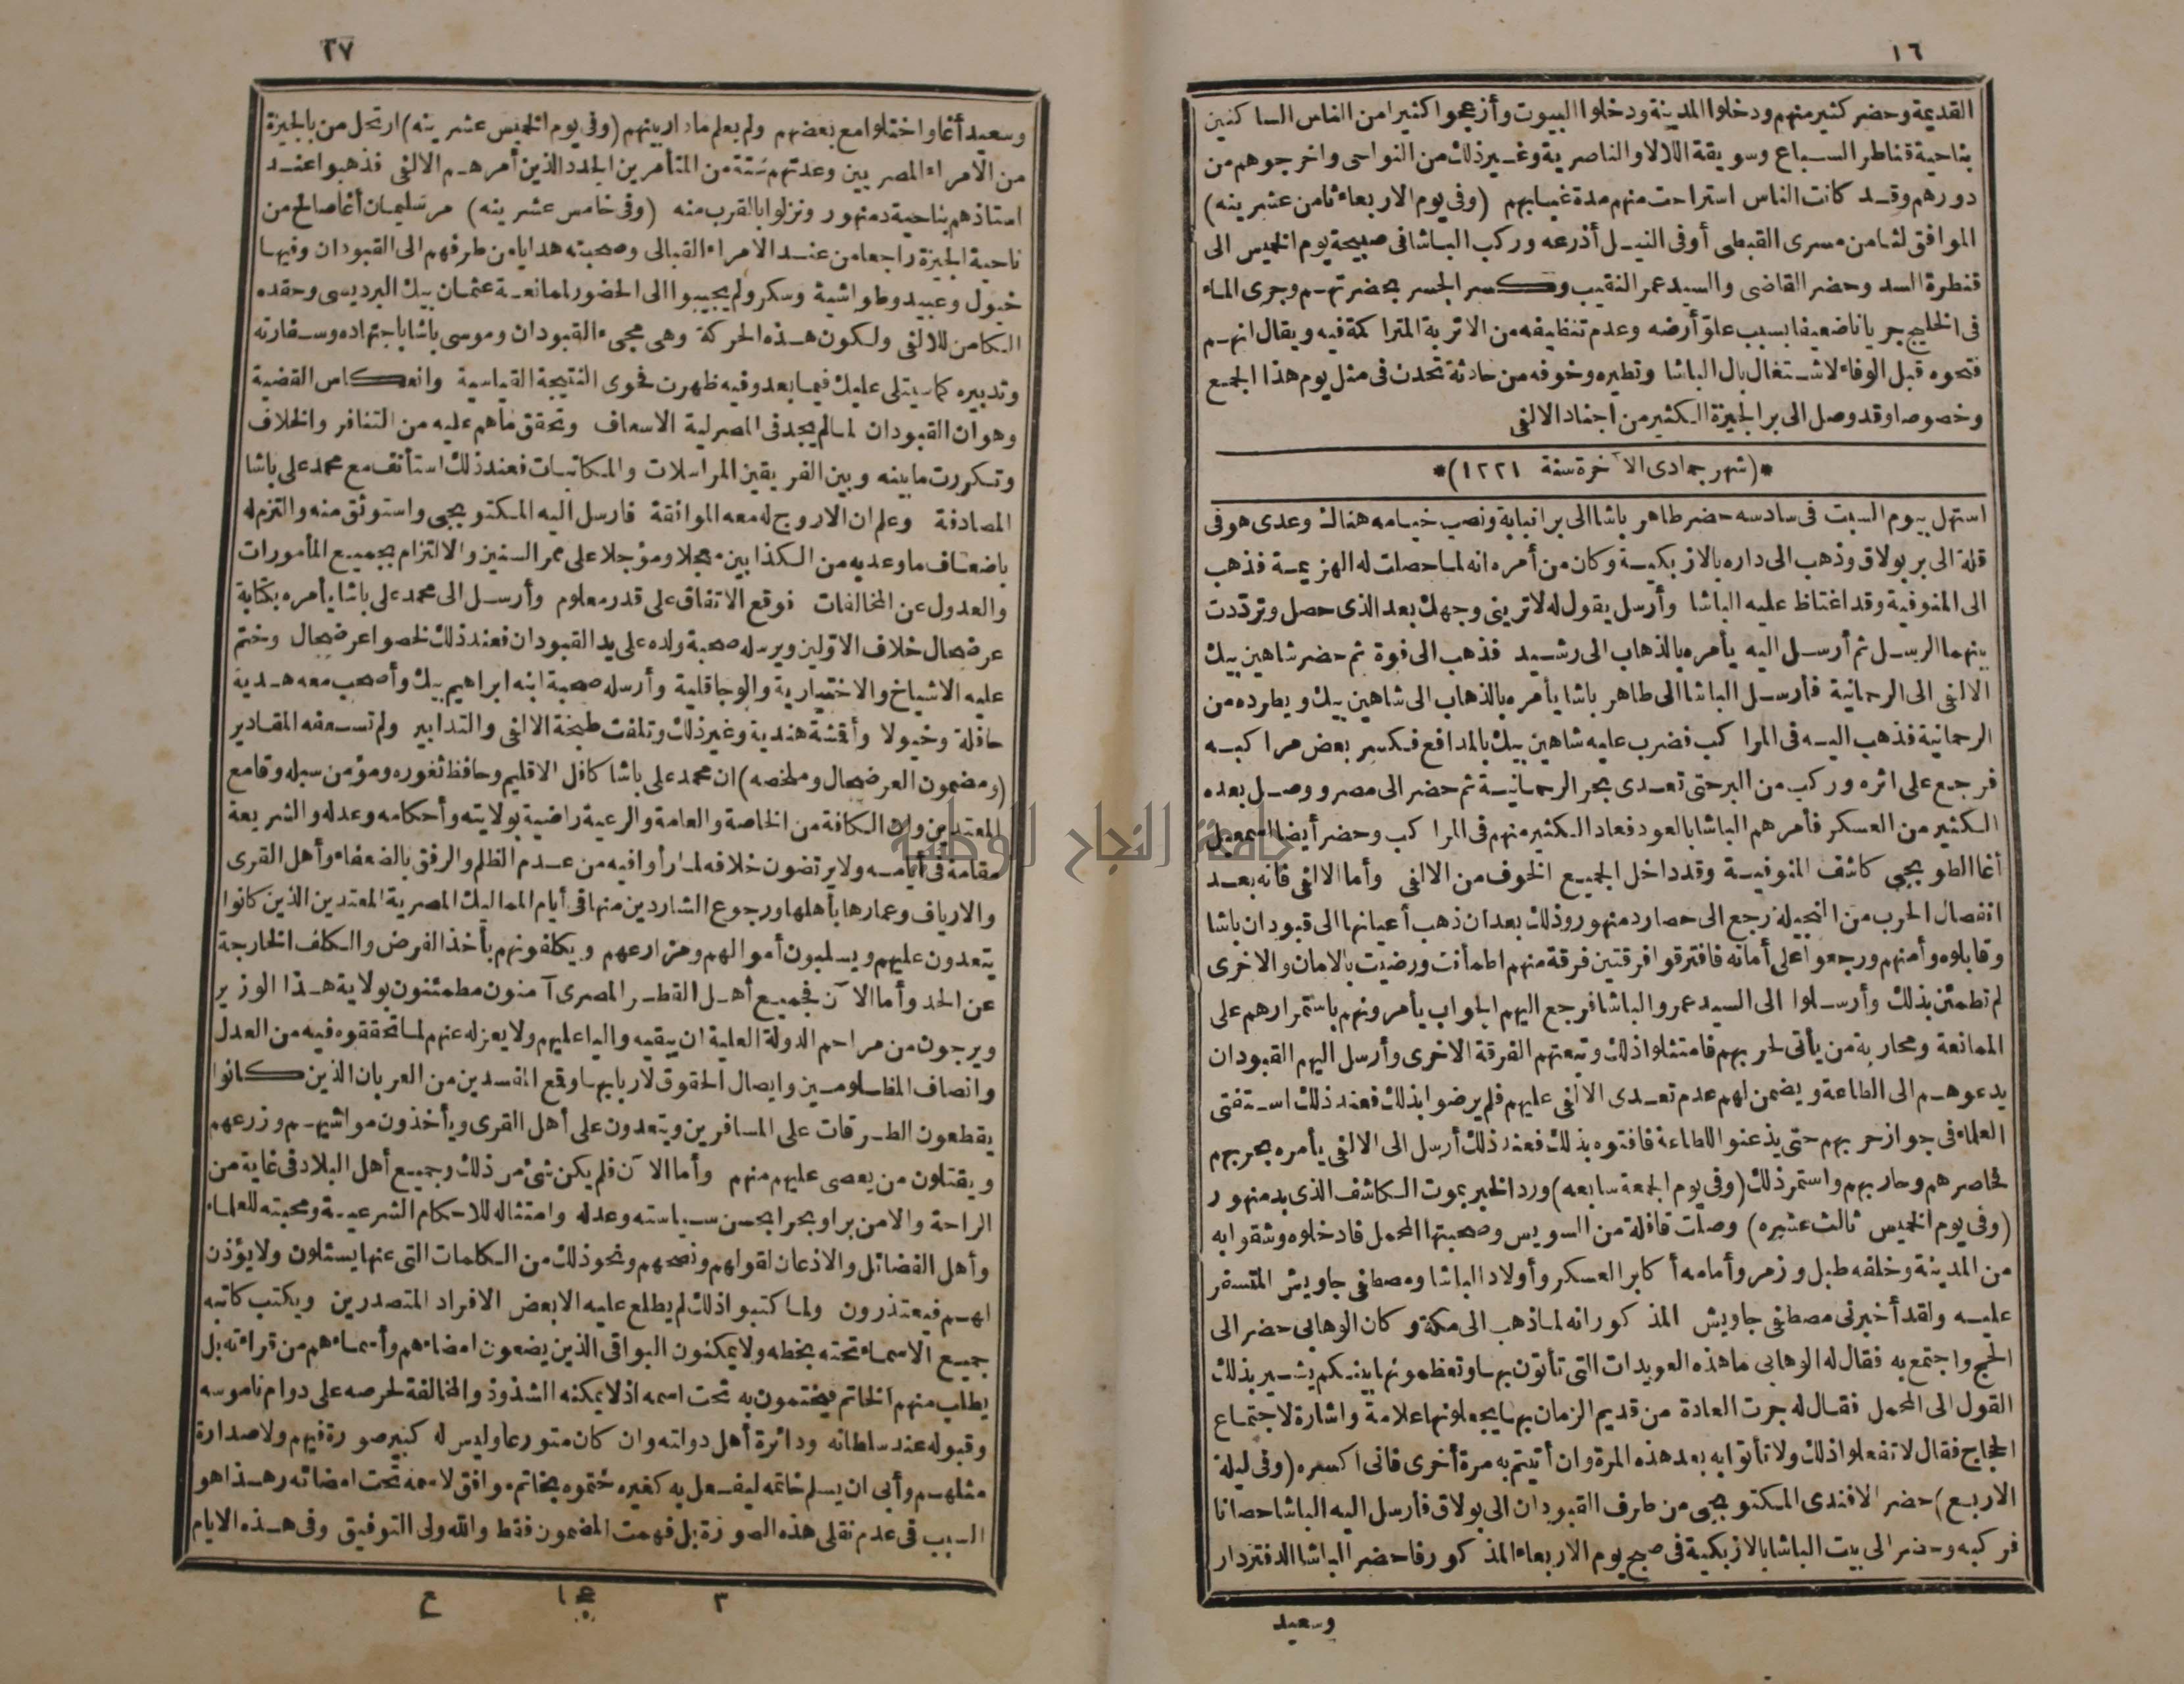 ١٦
القديمة وحضر كثير منهم ودخلوا المدينة ودخلوا البيوت وأزعجوا كثيرا من الناس الساكنين
بناحية قناطر السباع وسويقة اللالا والناصرية وغير ذلك من النواحى واخرجوهم من
دورهم وقد كانت الناس استراحت منهم مدة غيابهم (وفى يوم الاربعاء ثامن عشرينه)
الموافق لثامن مسرى القبطى أوفى النيل أذرعه وركب الباشا فى صبيحة يوم الخميس الى
قنطرة السد وحضر القاضى والسيد عمر النقيب وكسر الجسر بحضرتهم وجرى الماء
فى الخليج جريانا ضعيفا بسبب علو أرضه وعدم تنظيفه من الاتربة المتراكمة فيه ويقال انهم
فتحوه قبل الوفاء لاشتغال بال الباشا وتطيره وخوفه من حادثة تحدث فى مثل يوم هذا الجمع
وخصوصا وقد وصل الى بر الجيزة الكثير من اجناد الالفى
*(شهر جمادى الآخرة سنة ١٢٢١)*
استهل بيوم السبت فى سادسه حضر طاهر باشا الى بر انبابة ونصب خيامه هناك وعدى هو فى
قلة الى بر بولاق وذهب الى داره بالازبكية وكان من أمره انه لما حصلت له الهزيمة فذهب
الى المنوفية وقد اغتاظ عليه الباشا وأرسل يقول له لاترينى وجهك بعد الذى حصل وترددت
بينهما الرسل ثم أرسل اليه يأمره بالذهاب الى رشيد فذهب الى فوة ثم حضر شاهين بيك
الالفى الى الرحمانية فأرسل الباشا الى طاهر باشا يأمره بالذهاب الى شاهين بيك ويطرده من
الرحمانية فذهب اليه فى المراكب فضرب عليه شاهين بيك بالمدافع فكسر بعض مراكبه
فرجع على اثره وركب من البر حتى تعدى بحر الرحمانية ثم حضر الى مصر ووصل بعده
الكثير من العسكر فأمرهم الباشا بالعود فعاد الكثير منهم فى المراكب وحضر أيضا اسمعيل
أغا الطوبجى كاشف المنوفية وقد داخل الجميع الخوف من الالفى وأما الالفى فانه بعد
انفصال الحرب من النجيلة رجع الى حصار دمنهور وذلك بعد ان ذهب أعيانها الى قبودان باشا
وقابلوه وأمنهم ورجعوا على أمانه فافترقوا فرقتين فرقة منهم اطمأنت ورضيت بالامان والاخرى
لم تطمئن بذلك وأرسلوا الى السيد عمر والباشا فرجع اليهم الجواب يأمرونهم باستمرارهم على
الممانعة ومحاربة من يأتى لحربهم فامتثلوا ذلك وتبعتهم الفرقة الاخرى وأرسل اليهم القبودان
يدعوهم الى الطاعة ويضمن لهم عدم تعدى الالفى عليهم فلم يرضوا بذلك فعند ذلك استفتى
العلماء فى جواز حربهم حتى يذعنوا للطاعة فافتوه بذلك فعند ذلك أرسل الى الالفى يأمره بحربهم
فحاصرهم وحاربهم واستمر ذلك (وفى يوم الجمعة سابعه) ورد الخبر بموت الكاشف الذى بدمنهور
(وفى يوم الخميس ثالث عشره) وصلت قافلة من السويس وصحبتها المحمل فادخلوه وشقوا به
من المدينة وخلفه طبل وزمر وأمامه أكابر العسكر وأولاد الباشا ومصطفى جاويش المتسفر
عليه ولقد أخبرنى مصطفى جاويش المذكور انه لما ذهب الى مكة وكان الوهابى حضر الى
الحج واجتمع به فقال له الوهابى ما هذه العويدات التى تأتون بها وتعظمونها بينكم يشير بذلك
القول الى المحمل فقال له جرت العادة من قديم الزمان بها يجعلونها علامة واشارة لاجتماع
الحجاج فقال لا تفعلوا ذلك ولا تأتوا به بعد هذه المرة وان أتيتم به مرة أخرى فانى اكسره (وفى ليلة
الاربع) حضر الافندى المكتوبجى من طرف القبودان الى بولاق فأرسل اليه الباشا حصانا
فركبه وحضر الى بيت الباشا بالازبكية فى صبح يوم الاربعاء المذكور فاحضر الباشا الدفتردار
وسعيد
٢٧
وسعيد أغا واختلوا مع بعضهم ولم يعلم مادار بينهم (وفى يوم الخميس عشرينه) ارتحل من بالجيزة
من الامراء المصريين وعدتهم ستة من المتأمرين الجدد الذين أمرهم الالفى فذهبوا عند
استاذهم بناحية دمنهور ونزلوا بالقرب منه (وفى خامس عشرينه) مر سليمان أغا صالح من
ناحية الجيزة راجعا من عند الامراء القبالى وصحبته هدايا من طرفهم الى القبودان وفيها
خيول وعبيد وطواشية وسكر ولم يجيبوا الى الحضور لممانعة عثمان بيك البرديسى وحقده
الكامن للالفى ولكون هذه الحركة وهى مجىء القبودان وموسى باشا باجتهاده وسفارته
وتدبيره كما سيتلى عليك فيما بعد وفيه ظهرت فحوى النتيجة القياسية وانعكاس القضية
وهو ان القبودان لما لم يجد فى المصرلية الاسعاف وتحقق ماهم عليه من التنافر والخلاف
وتكررت مابينه وبين الفريقين المراسلات والمكاتبات فعند ذلك استأنف مع محمد على باشا
المصادقة وعلم ان الاروج له معه الموافقة فارسل اليه المكتوبجى واستوثق منه والتزم له
باضعاف ماوعد به من الكذابين معجلا ومؤجلا على ممر السنين والالتزام بجميع المأمورات
والعدول عن المخالفات فوقع الاتفاق على قدر معلوم وأرسل الى محمد على باشا يأمره بكتابة
عرضحال خلاف الاولين ويرسله صحبة ولده على يد القبودان فعند ذلك لخصوا عرضحال وختم
عليه الاشياخ والاختيارية والوجاقلية وأرسله صحبة ابنه ابراهيم بيك وأصحب معه هدية
حافلة وخيولا وأقشة هندية وغير ذلك وتلفت طبخة الالفى والتدابير ولم تسعفه المقادير
(ومضمون العرضحال وملخصه) ان محمد على باشا كافل الاقليم وحافظ ثغوره ومؤمن سبله وقامع
المعتدين وان الكافة من الخاصة والعامة والرعية راضية بولايته وأحكامه وعدله والشريعة
مقامة فى أيامه ولا يرتضون خلافه لما رأوا فيه من عدم الظلم والرفق بالضعفاء وأهل القرى
والارياف وعمارها بأهلها ورجوع الشاردين منها فى أيام المماليك المصرية المعتدين الذين كانوا
يتعدون عليهم ويسلبون أموالهم ومزارعهم ويكلفونهم بأخذ الفرض والكلف الخارجة
عن الحد وأما الآن فجميع أهل القطر المصرى آمنون مطمئنون بولاية هذا الوزير
ويرجون من مراحم الدولة العلية ان يبقيه واليا عليهم ولا يعزله عنهم لما تحققوه فيه من العدل
وانصاف المظلومين وايصال الحقوق لاربابها وقمع المفسدين من العربان الذين كانوا
يقطعون الطرقات على المسافرين ويتعدون على أهل القرى ويأخذون مواشيهم وزرعهم
ويقتلون من يعصى عليهم منهم وأما الآن فلم يكن شئ من ذلك وجميع أهل البلاد فى غاية من
الراحة والامن برا وبحرا بحسن سياسته وعدله وامتثاله للاحكام الشرعية ومحبته للعلماء
وأهل الفضائل والاذعان لقولهم ونصحهم ونحو ذلك من الكلمات التى عنها يسئلون ولا يؤذن
لهم فيعتذرون ولما كتبوا ذلك لم يطلع عليه الا بعض الافراد المتصدرين ويكتب كاتبه
جميع الاسماء تحته بخطه ولا يمكنون البواقى الذين يضعون امضاءهم وأسماءهم من قراءته بل
يطلب منهم الخاتم فيختمون به تحت اسمه اذ لا يمكنه الشذوذ والمخالفة لحرصه على دوام ناموسه
وقبوله عند سلطانه ودائرة أهل دولته وان كان متورعا وليس له كبير صورة فيهم ولا صدارة
مثلهم وأبى ان يسلم خاتمه ليفعل به كغيره ختموه بخاتم موافق لاسمه تحت امضائه وهذا هو
السبب فى عدم نقلى هذه الصورة بل فهمت المضمون فقط والله ولى التوفيق وفى هذه الايام
٣ ع
جامعة النجاح الوطنية